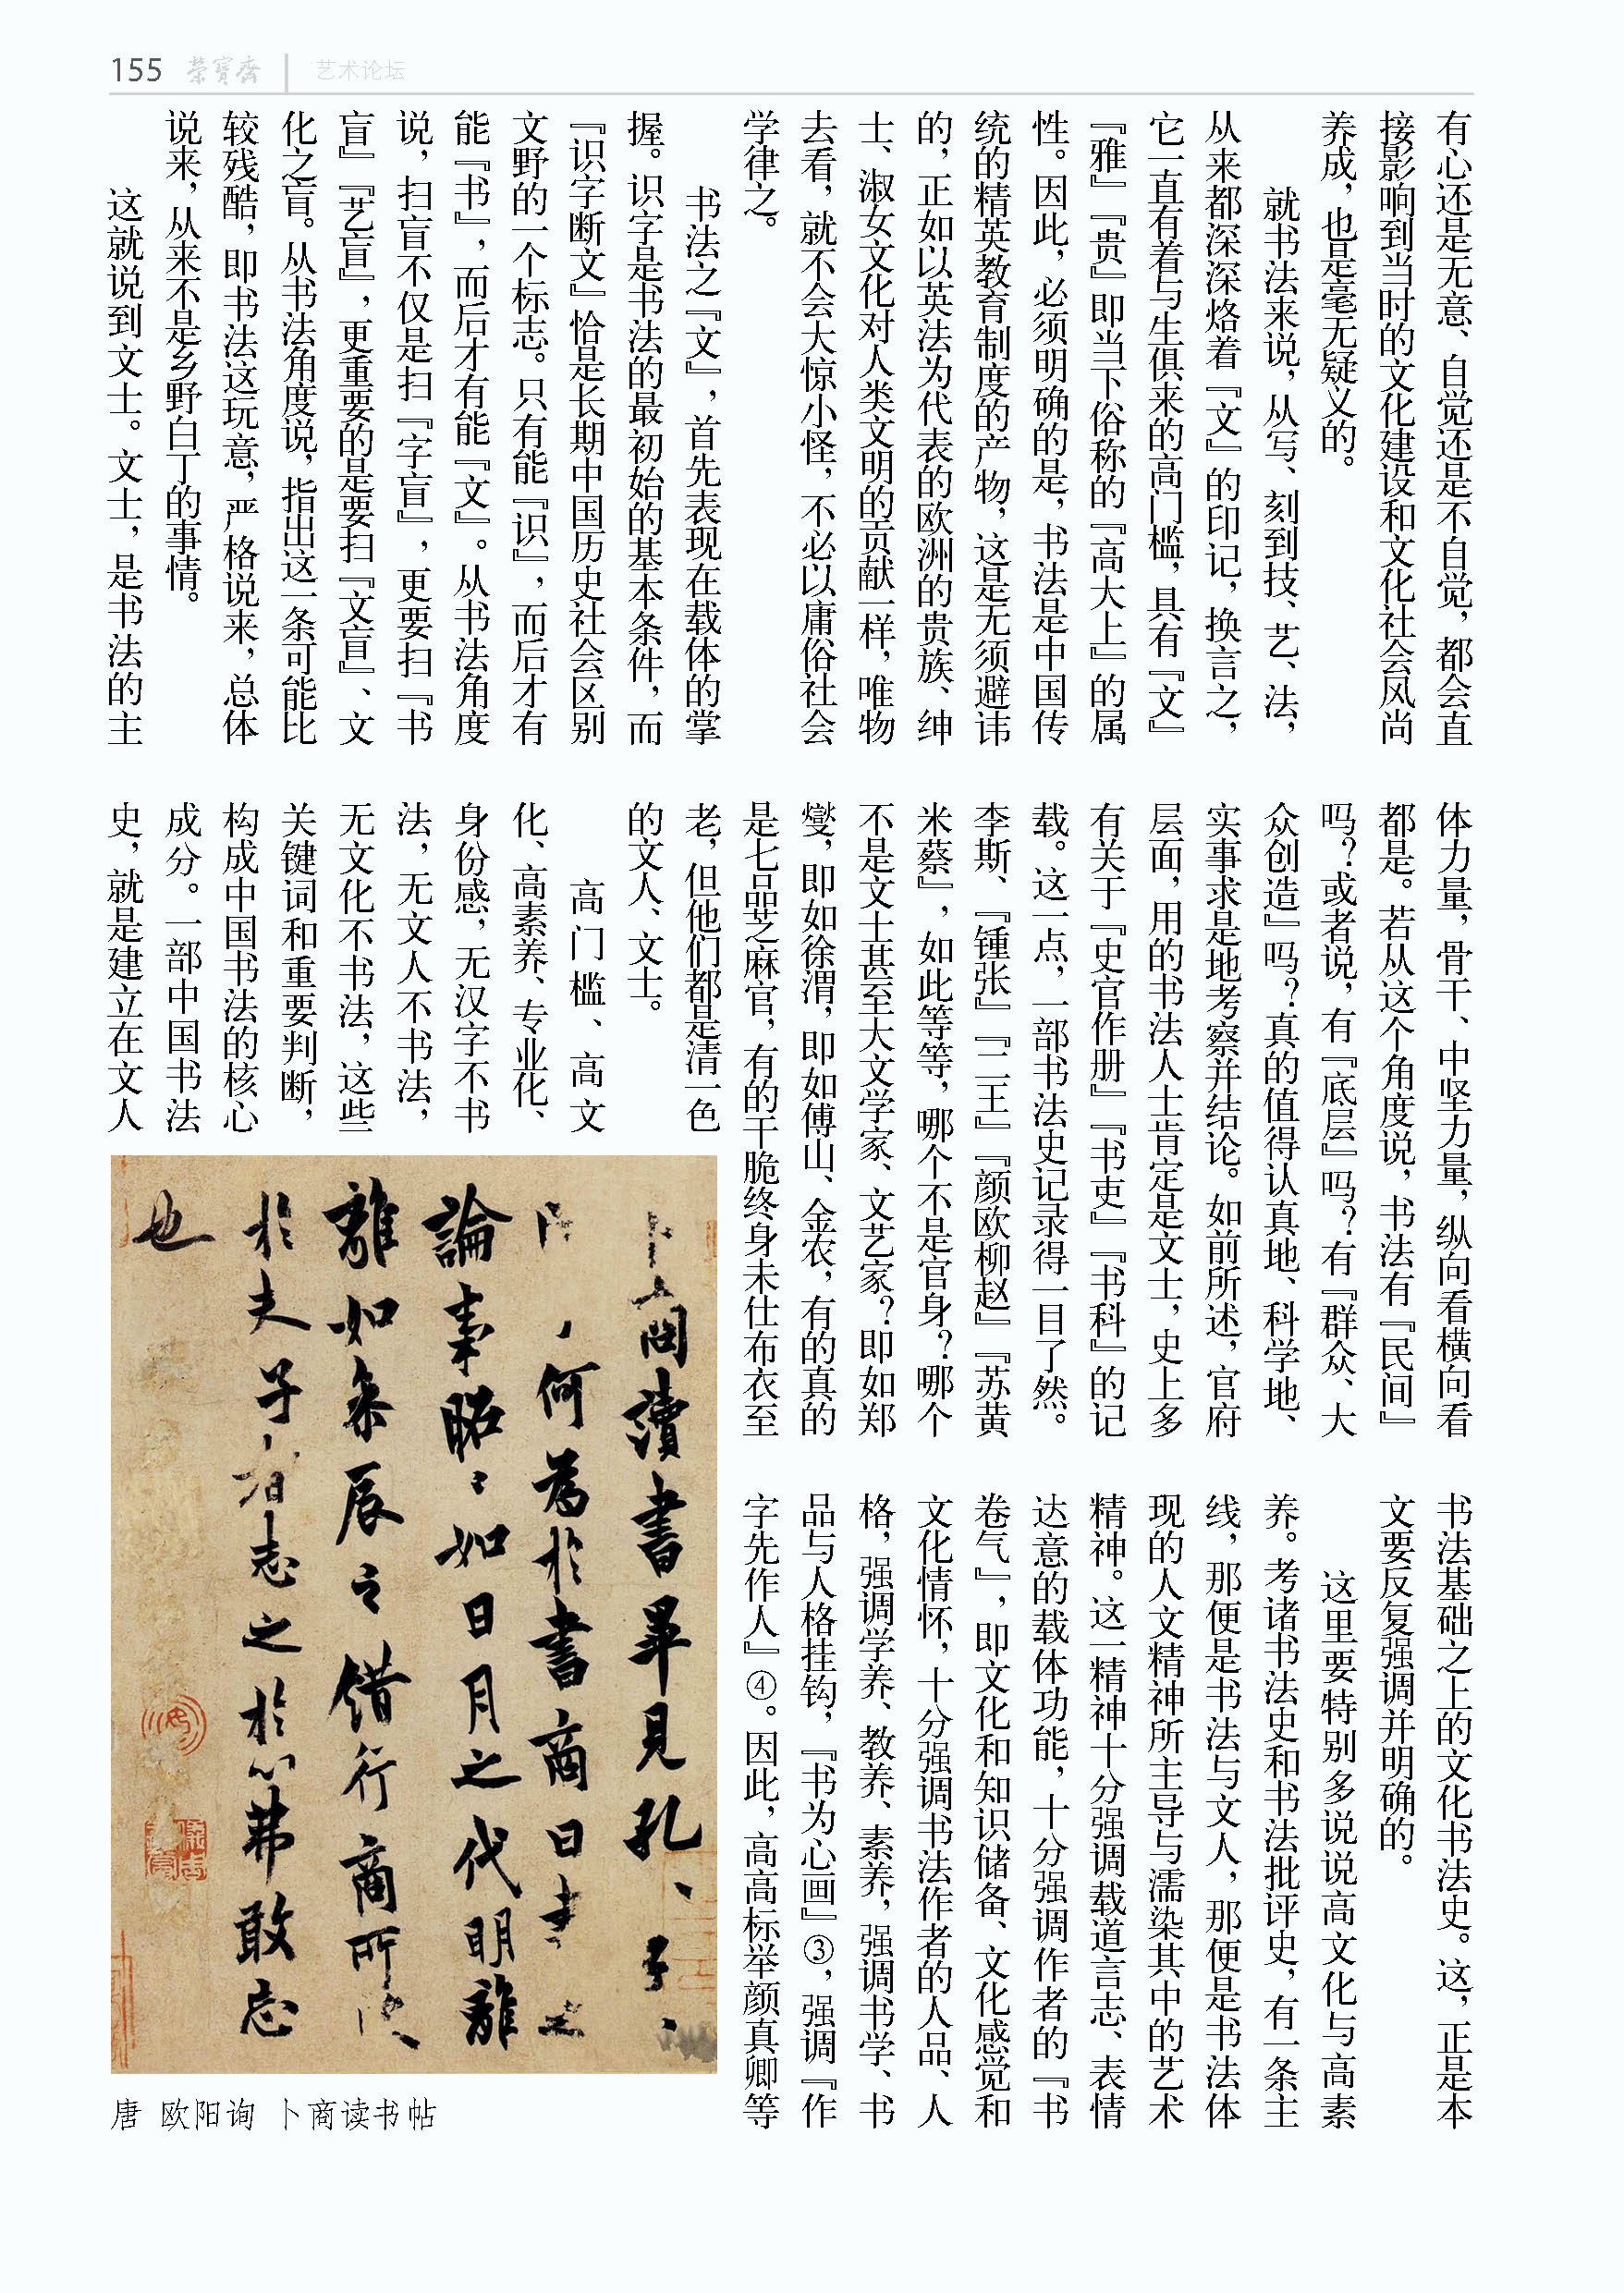 155 荣宝斋 艺术论坛
有心还是无意、自觉还是不自觉，都会直
接影响到当时的文化建设和文化社会风尚
养成，也是毫无疑义的。
就书法来说，从写、刻到技、艺、法，
从来都深深烙着『文』的印记，换言之，
它一直有着与生俱来的高门槛，具有『文』
『雅』『贵』即当下俗称的『高大上』的属
性。因此，必须明确的是，书法是中国传
统的精英教育制度的产物，这是无须避讳
的，正如以英法为代表的欧洲的贵族、绅
士、淑女文化对人类文明的贡献一样，唯物
去看，就不会大惊小怪，不必以庸俗社会
学律之。
书法之『文』，首先表现在载体的掌
握。识字是书法的最初始的基本条件，而
『识字断文』恰是长期中国历史社会区别
文野的一个标志。只有能『识』，而后才有
能『书』，而后才有能『文』。从书法角度
说，扫盲不仅是扫『字盲』，更要扫『书
盲』『艺盲』，更重要的是要扫『文盲』、文
化之盲。从书法角度说，指出这一条可能比
较残酷，即书法这玩意，严格说来，总体
说来，从来不是乡野白丁的事情。
这就说到文士。文士，是书法的主
体力量，骨干、中坚力量，纵向看横向看
都是。若从这个角度说，书法有『民间』
吗？或者说，有『底层』吗？有『群众、大
众创造』吗？真的值得认真地、科学地、
实事求是地考察并结论。如前所述，官府
层面，用的书法人士肯定是文士，史上多
有关于『史官作册』『书吏』『书科』的记
载。这一点，一部书法史记录得一目了然。
李斯、『锺张』『二王』『颜欧柳赵』『苏黄
米蔡』，如此等等，哪个不是官身？哪个
不是文士甚至大文学家、文艺家？即如郑
燮，即如徐渭，即如傅山、金农，有的真的
是七品芝麻官，有的干脆终身未仕布衣至
老，但他们都是清一色
的文人、文士。
高门槛、高文
化、高素养、专业化、
身份感，无汉字不书
法，无文人不书法，
无文化不书法，这些
关键词和重要判断，
构成中国书法的核心
成分。一部中国书法
史，就是建立在文人
书法基础之上的文化书法史。这，正是本
文要反复强调并明确的。
这里要特别多说说高文化与高素
养。考诸书法史和书法批评史，有一条主
线，那便是书法与文人，那便是书法体
现的人文精神所主导与濡染其中的艺术
精神。这一精神十分强调载道言志、表情
达意的载体功能，十分强调作者的『书
卷气』，即文化和知识储备、文化感觉和
文化情怀，十分强调书法作者的人品、人
格，强调学养、教养、素养，强调书学、书
品与人格挂钩，『书为心画』③，强调『作
字先作人』④。因此，高高标举颜真卿等
卜商讀書畢見孔、子、
何為於書商曰書之
論事昭〻如日月之代明離
離如參辰之錯行商所
於夫子者志之於心弗敢忘
也
唐 欧阳询 卜商读书帖